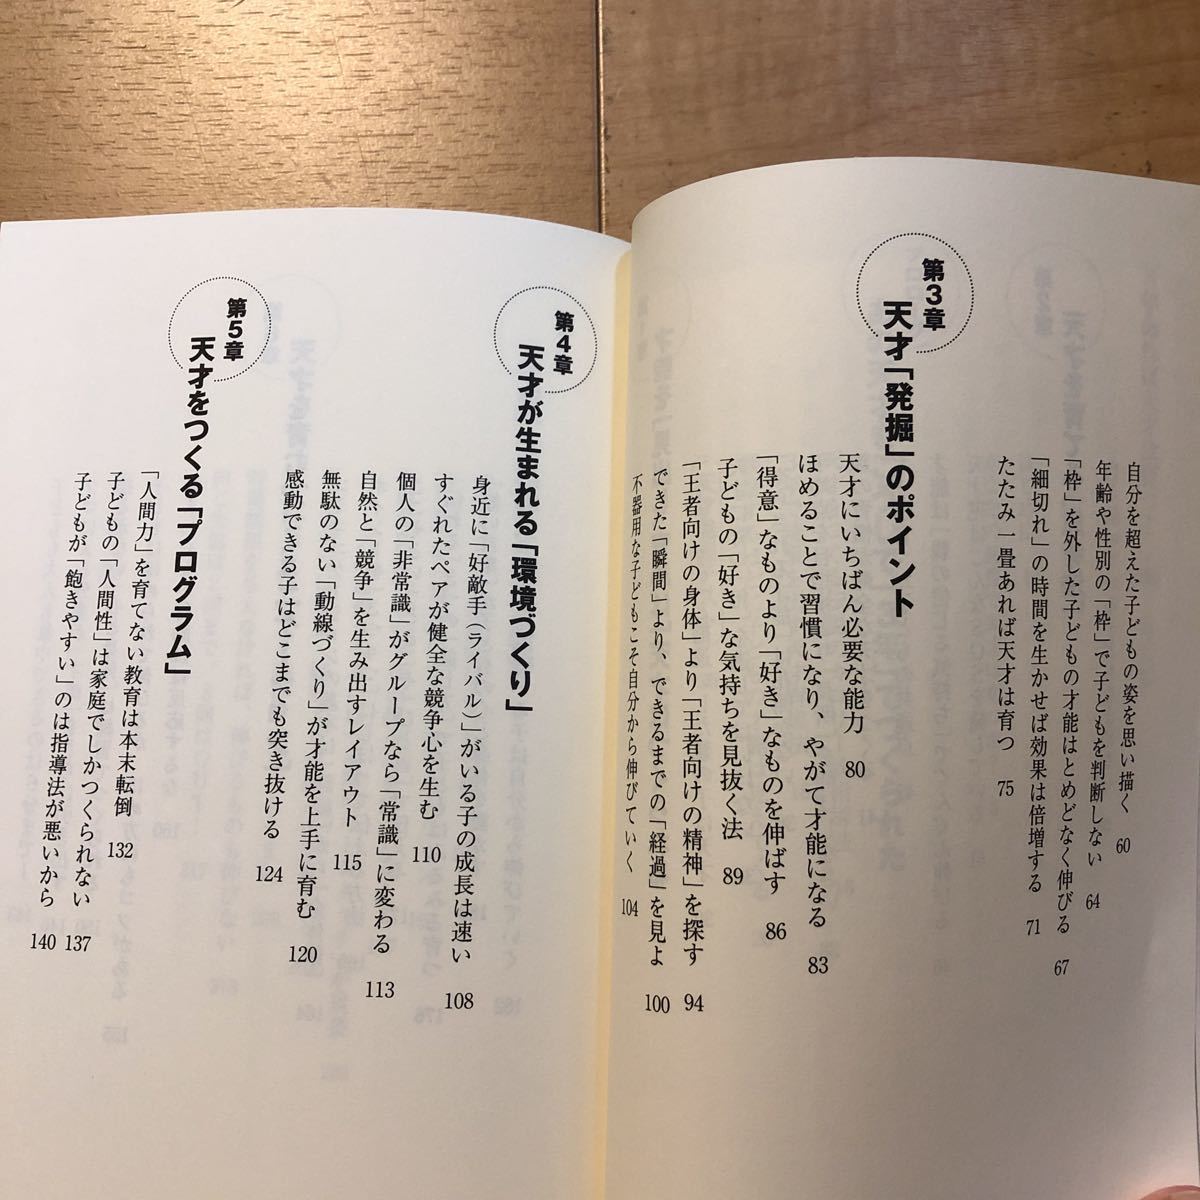 自分を超えた子どもの姿を思い描く 60
年齢や性別の「枠」で子どもを判断しない 64
「枠」を外した子どもの才能はとめどなく伸びる 67
「細切れ」の時間を生かせば効果は倍増する 71
たたみ一畳あれば天才は育つ 75
第3章
天才「発掘」のポイント
天才にいちばん必要な能力 80
ほめることで習慣になり、やがて才能になる 83
「得意」なものより「好き」なものを伸ばす 86
子どもの「好き」な気持ちを見抜く法 89
「王者向けの身体」より「王者向けの精神」を探す 94
できた「瞬間」より、できるまでの「経過」を見よ 100
不器用な子どもこそ自分から伸びていく 104
第4章
天才が生まれる「環境づくり」
身近に「好敵手（ライバル）」がいる子の成長は速い 108
すぐれたペアが健全な競争心を生む 110
個人の「非常識」がグループなら「常識」に変わる 113
自然と「競争」を生み出すレイアウト 115
無駄のない「動線づくり」が才能を上手に育む 120
感動できる子はどこまでも突き抜ける 124
第5章
天才をつくる「プログラム」
「人間力」を育てない教育は本末転倒 132
子どもの「人間性」は家庭でしかつくられない 137
子どもが「飽きやすい」のは指導法が悪いから 140